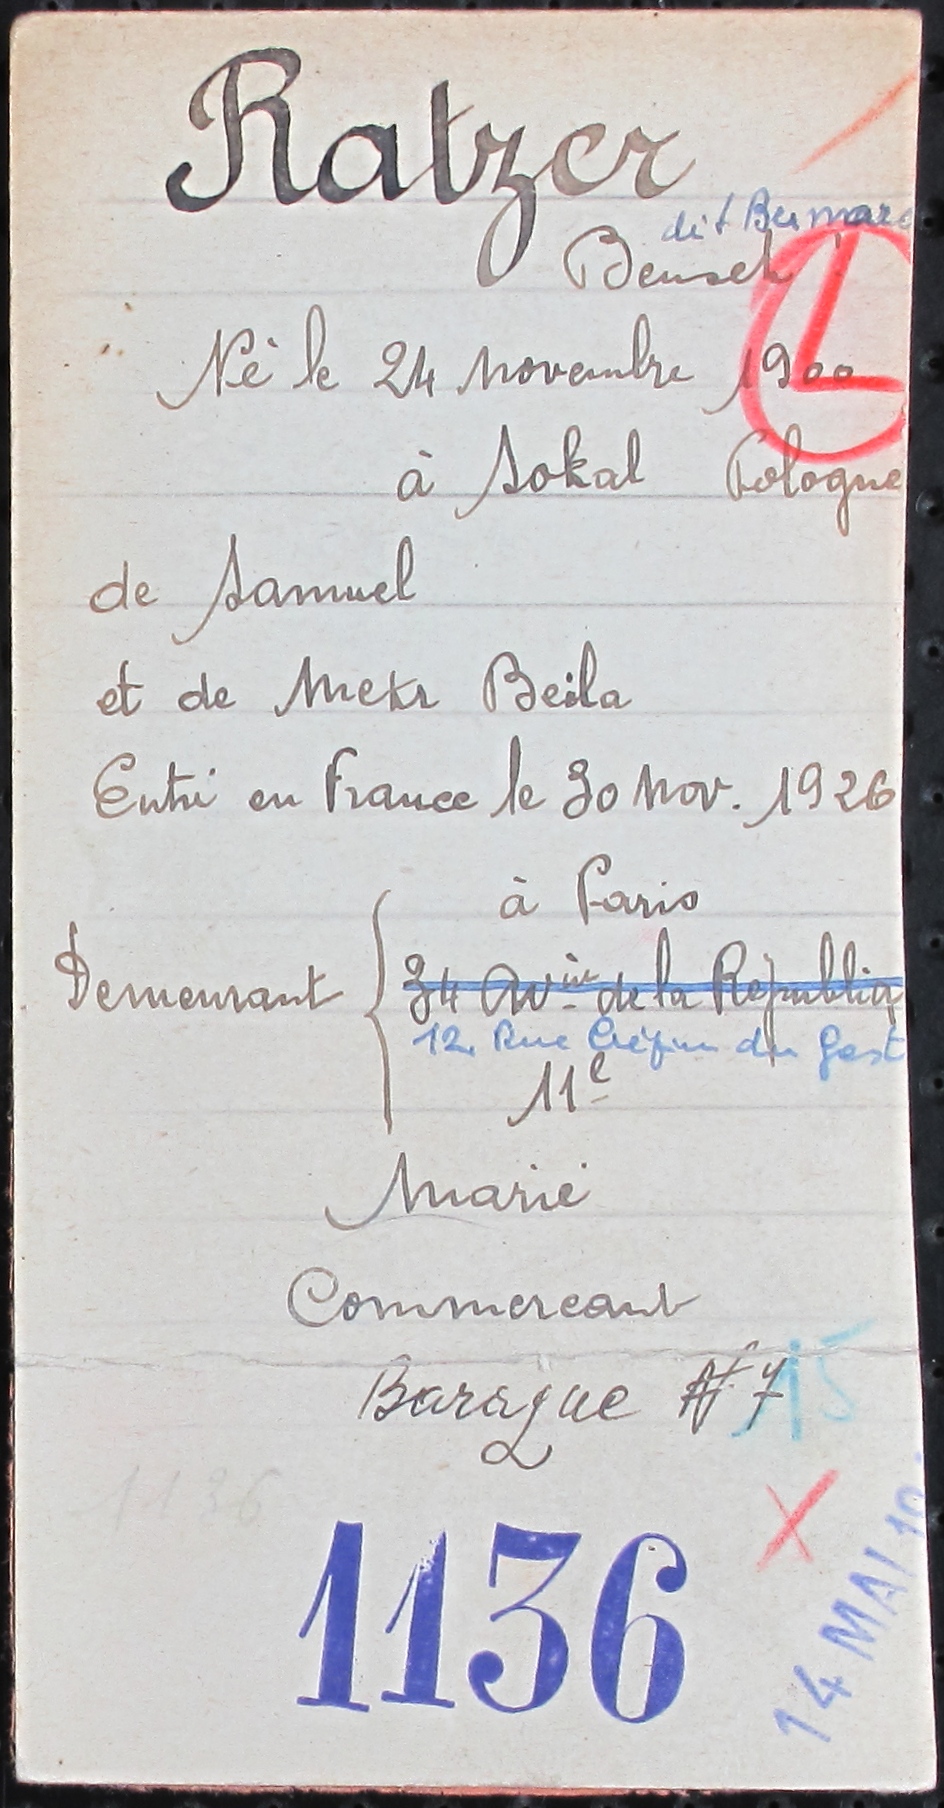 Ratzer
dit Bernard
Beusch
Né le 24 novembre 1900
à Sokal Pologne
de Samuel
et de Mekr Beila
Entré en France le 30 Nov. 1926
à Paris
Demeurant
34 Avue de la Républiq
12, Rue Crépin du Gast
11e
Marié
Commercant
Baraque N 7
15
1136
1136
14 MAI